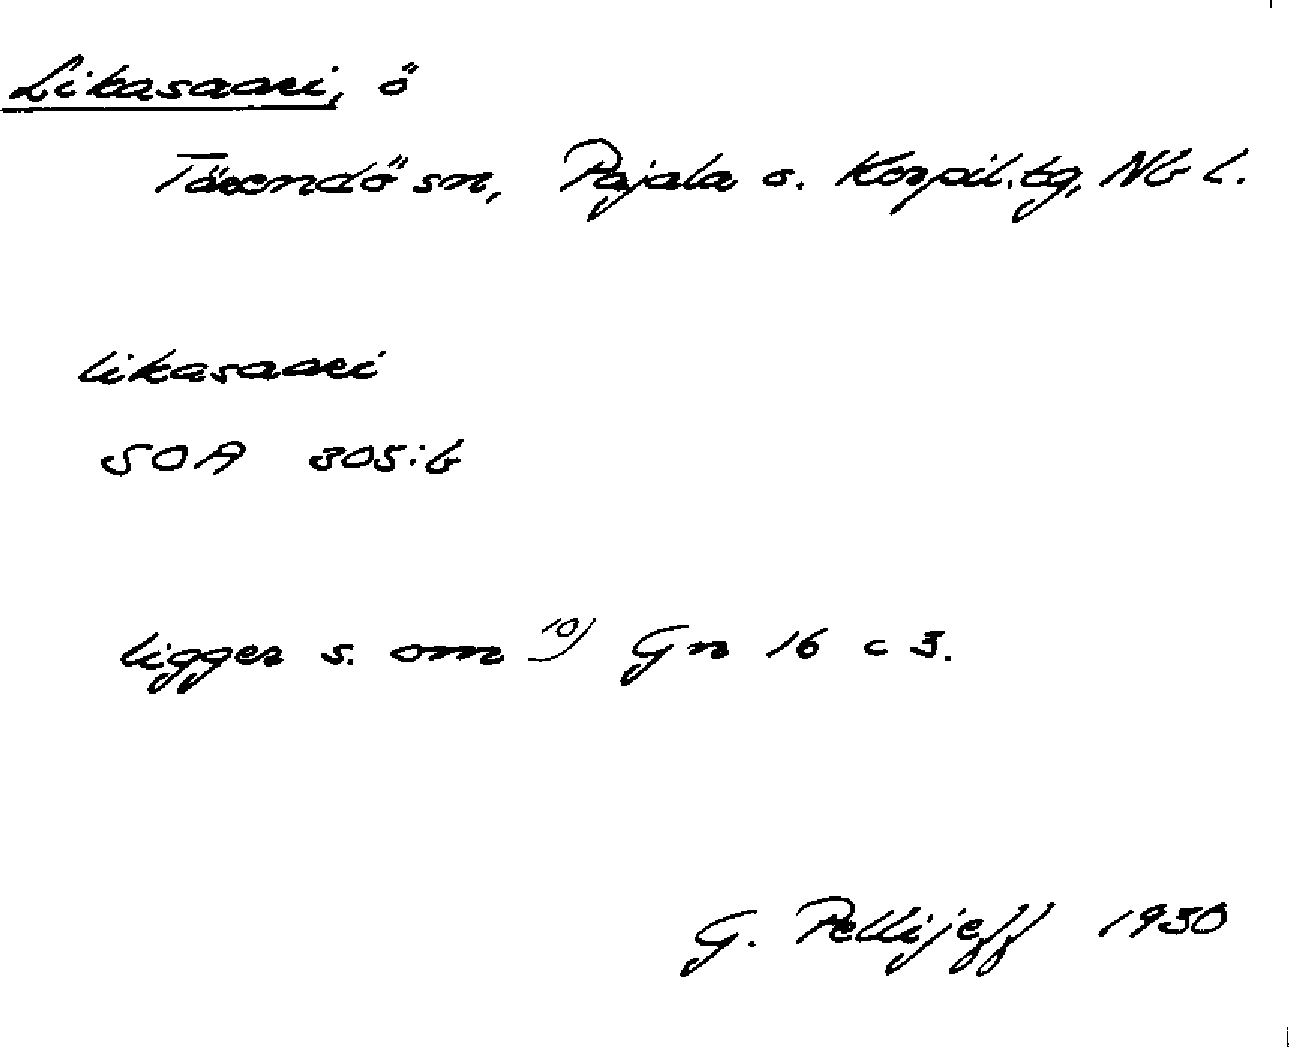 Likasaari, ö
Tärendö sn, Pajala o. Korpil.tg, Nb L.
likasaari
SOA 305:6
ligger s. om 10) Gn 16 c 3.
G. Pellijeff 1930